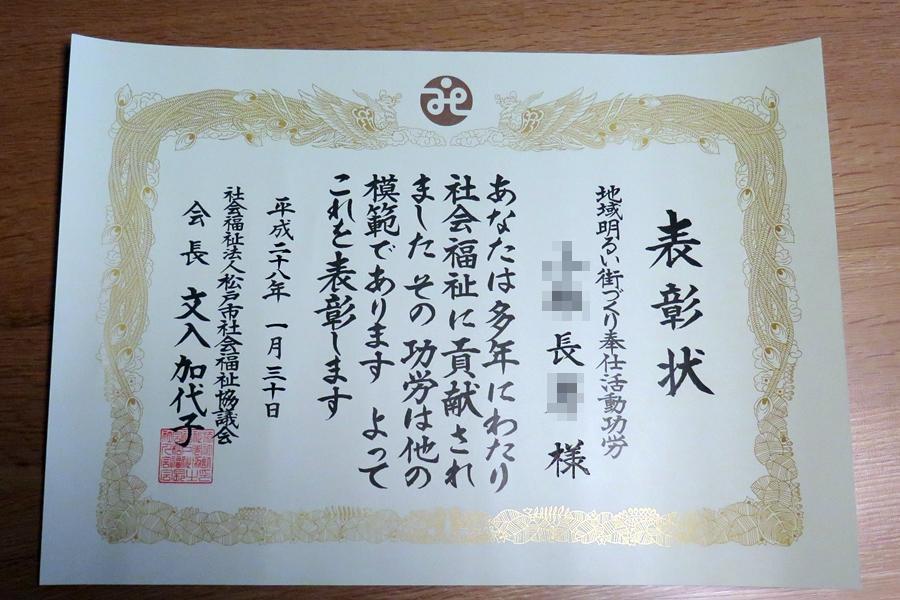 表彰状
地域明るい街づくり奉仕活動功労
長 様
あなたは多年にわたり
社会福祉に貢献され
ました その功労は他の
模範であります よって
これを表彰します
平成二十八年 一月三十日
社会福祉法人松戸市社会福祉協議会
会長 文入 加代子